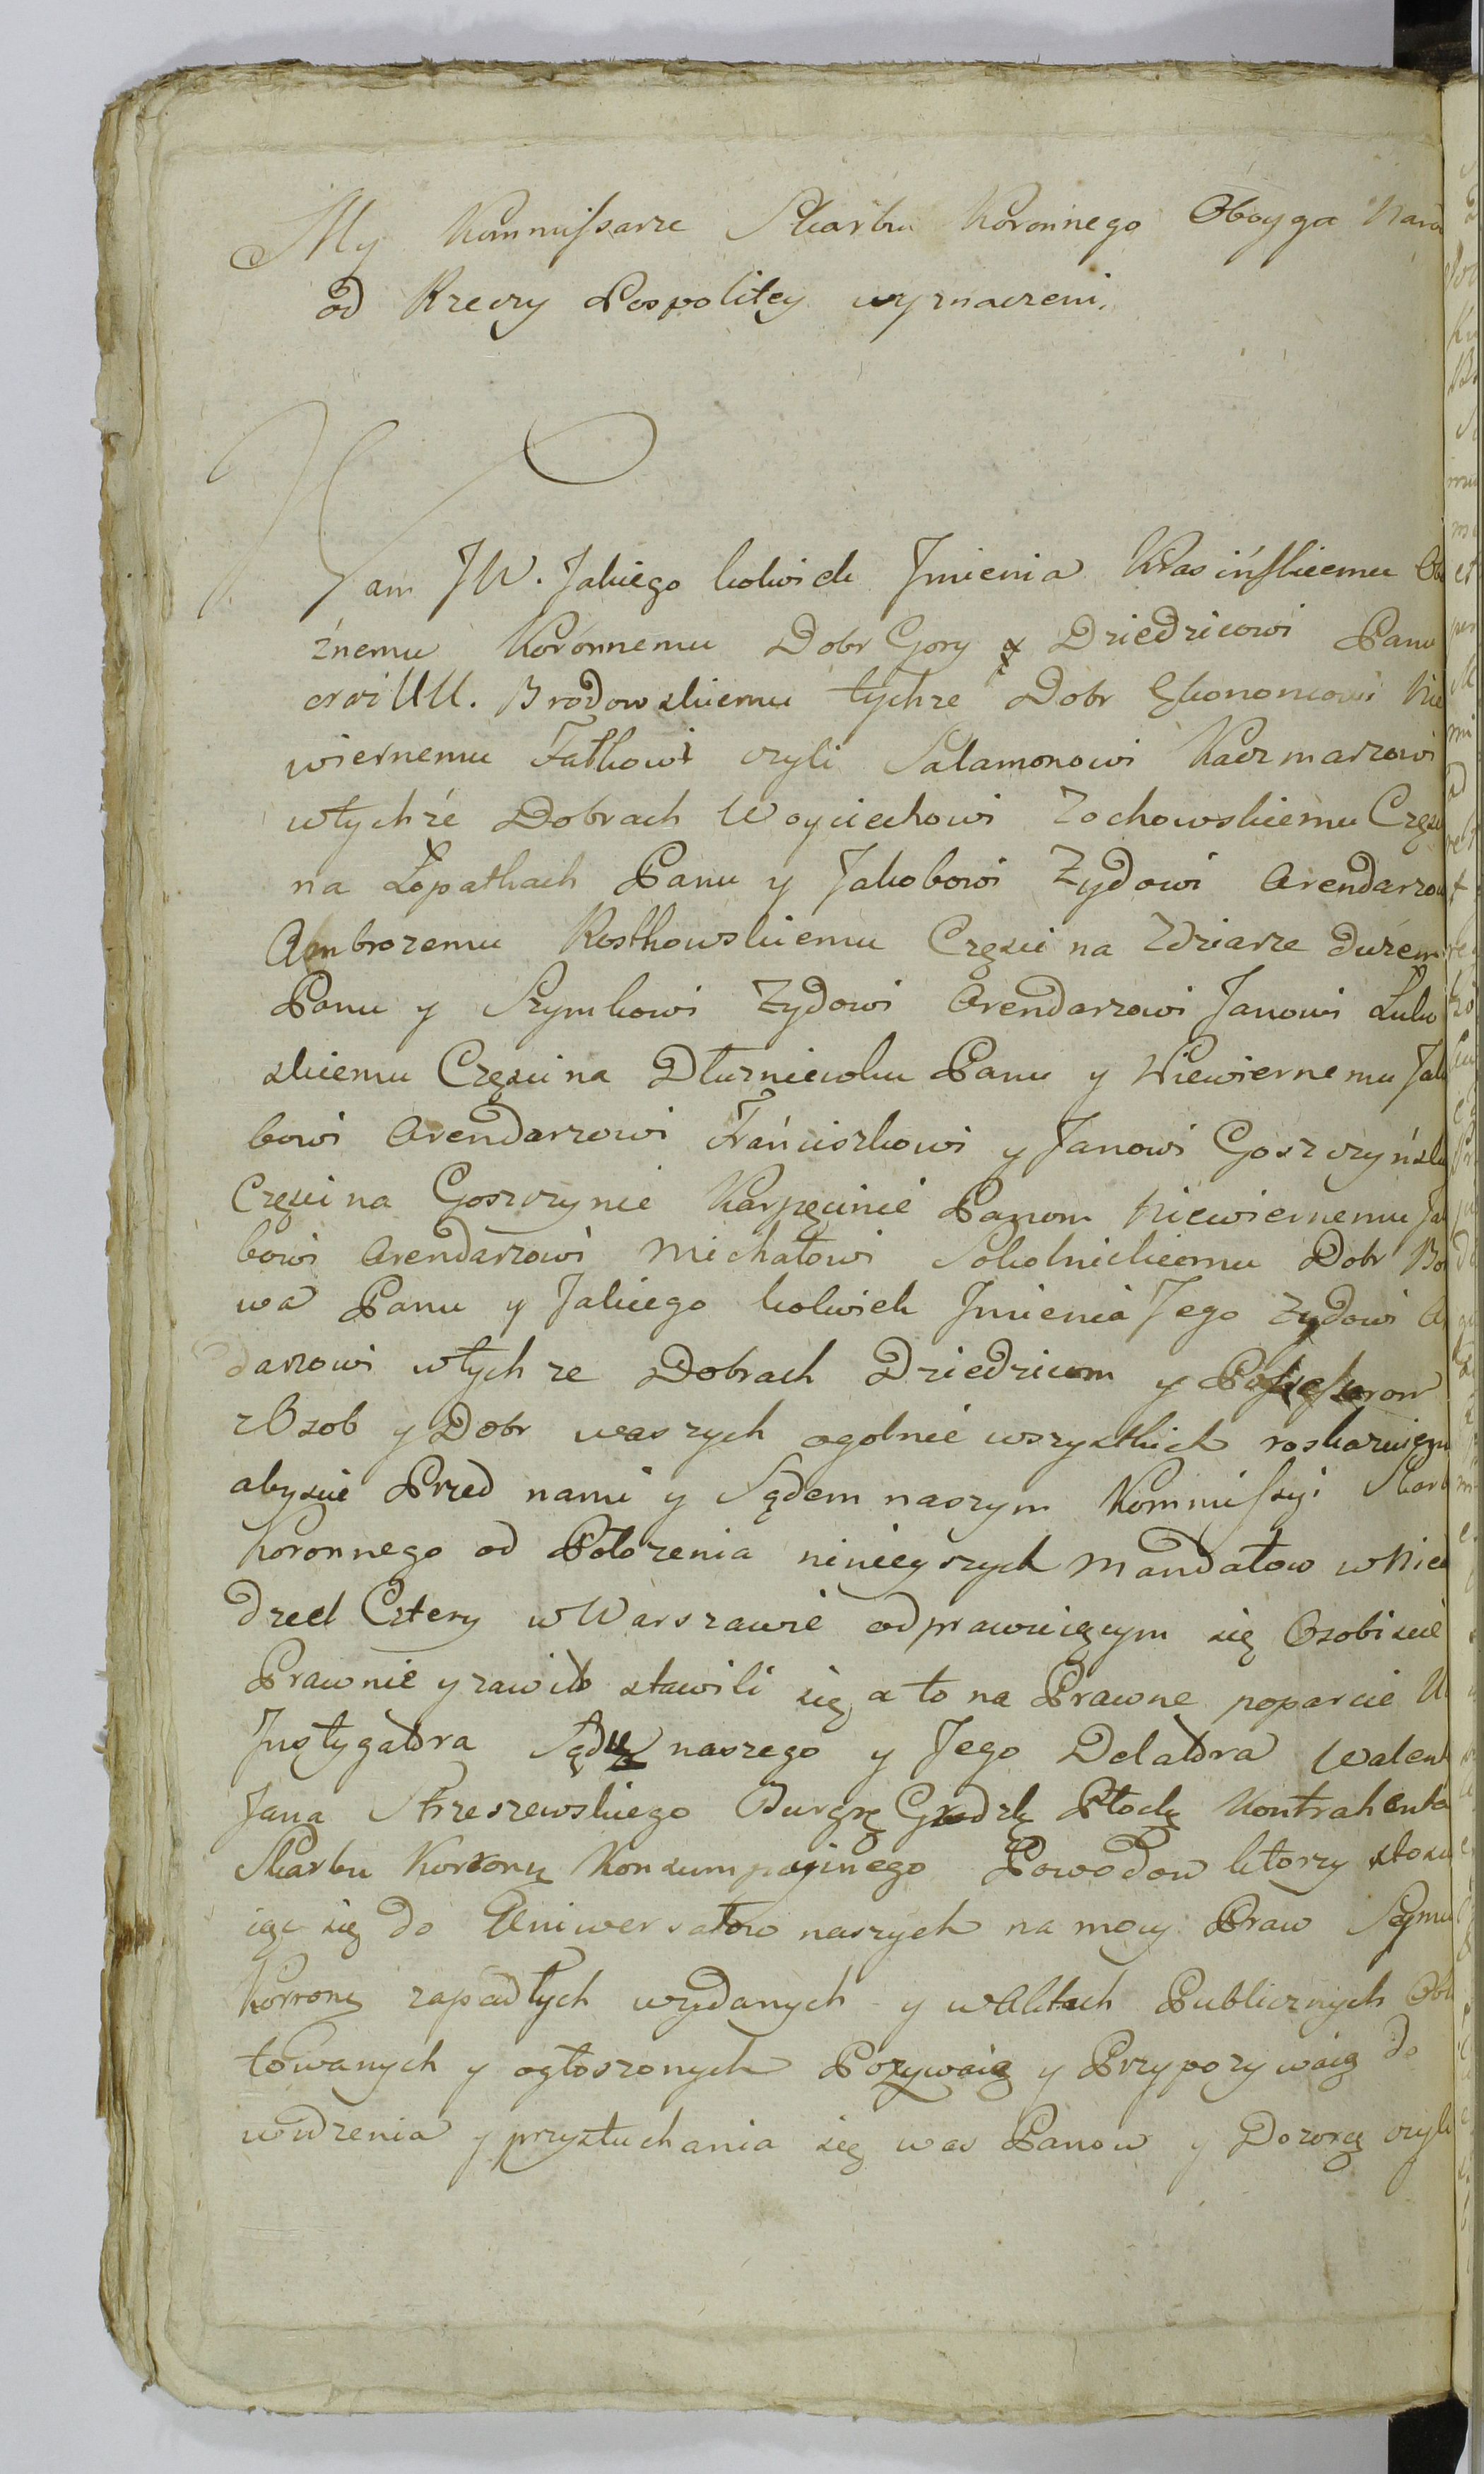 My Kommissarze Skarbu Koronnego Oboyga Naro
od Rzeczy Pospolitey wyznaczeni,
Wam JW. Jakiego kolwiek Jmienia Krasińskiemu Obo
źnemu Koronnemu Dobr Gory Dziedzicowi Panu
Brodowskiemu tychze Dobr Ekonomowi Nie
wiernemu Fatkowi czyli Salamonowi Kaczmarzowi
wtychże Dobrach Woyciechowi Zochowskiemu Częsci
na Łopatkach Panu y Jakobowi Zydowi Arendarzowi
Ambrozemu Rostkowskiemu Częsci na Zdziarze dużem
Panu y Szymkowi Zydowi Arendarzowi Janowi Luko
skiemu Częsci na Dłuzniewku Panu y Niewiernemu Jako
bowi Arendarzowi Franciszkowi y Janowi Goszczyńsk
Częsci na Goszczynie Karpęcinie Panom Niewiernemu Jak
bowi Arendarzowi Michałowi Sokolnickiemu Dobr Bo
wa Panu y Jakiego kolwiek Jmienia Jego Zydowi Ar
darzowi wtych ze Dobrach Dziedzicom y Possessorom
z Osob y Dobr waszych ogolnie wszystkich roskazuiemy
abyscie Przed nami y Sądem naszym Kommissyi Skarb
Koronnego od Położenia ninieyszych Mandatow w Nie
dziel Cztery w Warszawie odprawuiącym się Osobiscie
Prawnie y zawito stawili się, a to na Prawne poparcie U
Justygatora Sądu naszego y Jego Delatora Walent
Jana Strzeszewskiego Burgrę Grodzk Płockę Kontrahenta
Skarbu Korony Konsumpcyinego Powodow ktorzy stosu
iąc się do Uniwersałow naszych na mocy Praw Seymu
Korronę zapadłych wydanych y w Aktach Publicznych Obla
towanych y ogłoszonych Pozywaią y Przypozywaią do
widzenia y przysłuchania się was Panow y Dozorcę czyli